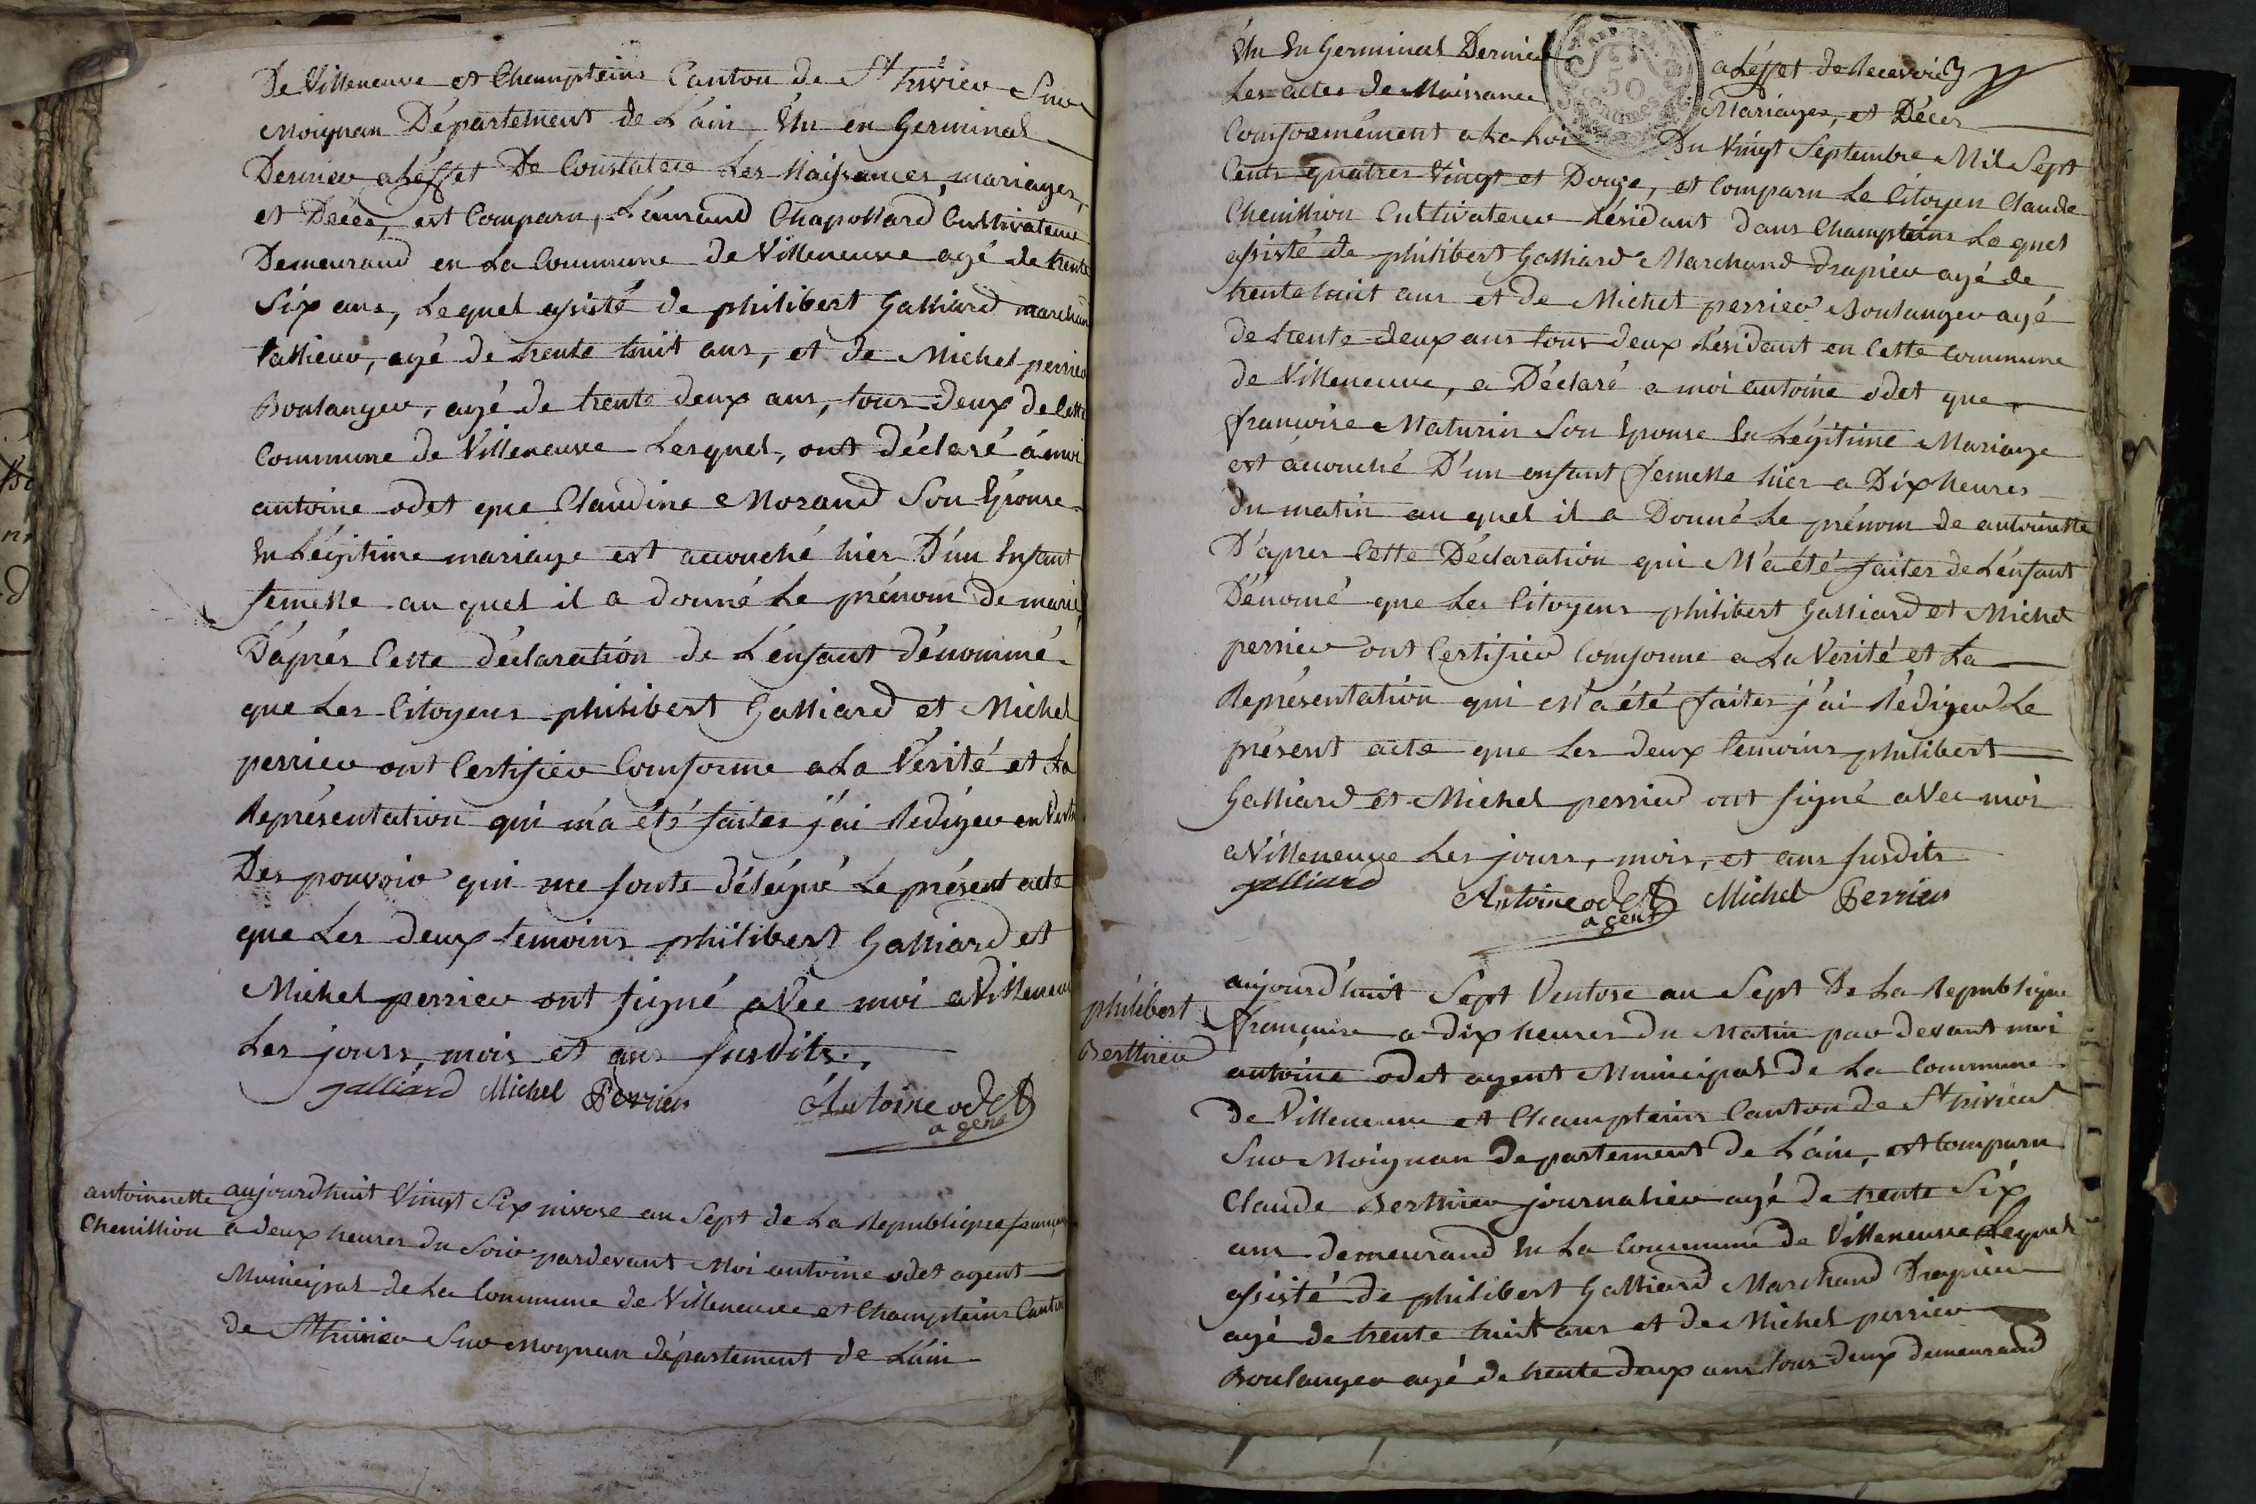 De Villeneuve et Champteins Canton de St trivier Sur
Moignan Département de L'ain, Elu en Germinal
Dernier a L'effet De Constater Les Naissances, mariages,
et Décés, est Comparu, L'aurand Chapollard Cultivateur
Demeurand en La Commune de Villeneuve agé de trente
Six ans, Lequel assisté de philibert Galliard marchand
agé de trente huit ans, et de Michel perrier
Boulanger, agé de trente deux ans, tous deux de Cette
Commune de Villeneuve Lesquel, ont déclaré à moi
antoine odet que Claudine Morand Son Epouse
En Légitime mariage est accouché hier D'un Enfant
femelle au quel il a donné Le prénom De marie,
D'aprés Cette déclaration de L'enfant dénommé
que Les Citoyens philibert Galliard et Michel
perrier ont Certifier Comforme a La Vérité et La
Représentation qui m'a été faites j'ai Rediger en
Des pouvoir qui me sonte délégué Le présent acte
que Les deux temoins philibert Galliard et
Michel perrier ont signé aVec moi a Villeneuve
Les jours, mois et ans susdits.
galliard Michel Perrier Antoine odet
agent
antoinnette
Chenillion
aujourdhuit Vingt Six nivose an Sept de La Republique
a deux heures du Soir pardevant Moi antoine odet agent
Municipal de La Commune de Villeneuve et Champteins Canton
de St trivier Sur Moynan département de L'ain
Elu En Germinal Dernier a L'effet de Recevoir
Les actes de Naissance Mariages, et Déces
Comformément a La Loi Du Vingt Septembre Mil Sept
Cents quatres Vingt et Douze, est Comparu Le Citoyen Claude
Chenillion Cultivateur Résidant dans Champteins Le quel
assisté de philibert Galliard Marchand drapier agé de
trente huit ans et de Michel perrier Boulanger agé
de trente deux ans tous deux Résidant en Cette Commune
de Villeneuve, a Déclaré a moi antoine odet que
françoise Maturin Son Epouse En Légitime Mariage
est accouché D'un enfant femelle hier a Dix heures
du matin au quel il a Donné Le prénom de antoinette
D'apres Cette Déclaration qui M'a été faites de L'enfant
Dénomé que Les Citoyens philibert Galliard et Michel
perrier ont Certifier Comforme a La Verité et La
Représentation qui M'a été faites j'ai Rédiger Le
présent acte que Les deux temoins philibert
Galliard et Michel perrier ont signé aVec moi
a Villeneuve Les jours, mois, et ans susdits
galliard Antoine odet Michel Perrier
agent
philibert
Berthier
aujourd'huit Sept Ventose an Sept De La Republique
françaisse a dix heures du Matin par devant moi
antoine odet agent Municipal de La Commune
de Villeneuve et Champteins Canton de St trivier
Sur Moignan Departement de L'ain, est Comparu
Claude Berthier journalier agé de trente Six
ans demeurand En La Commune de Villeneuve Lequel
assisté de philibert Galliard Marchand Drapier
agé de trente huit ans et de Michel perrier
Boulanger agé de trente deux ans tous deux demeurand